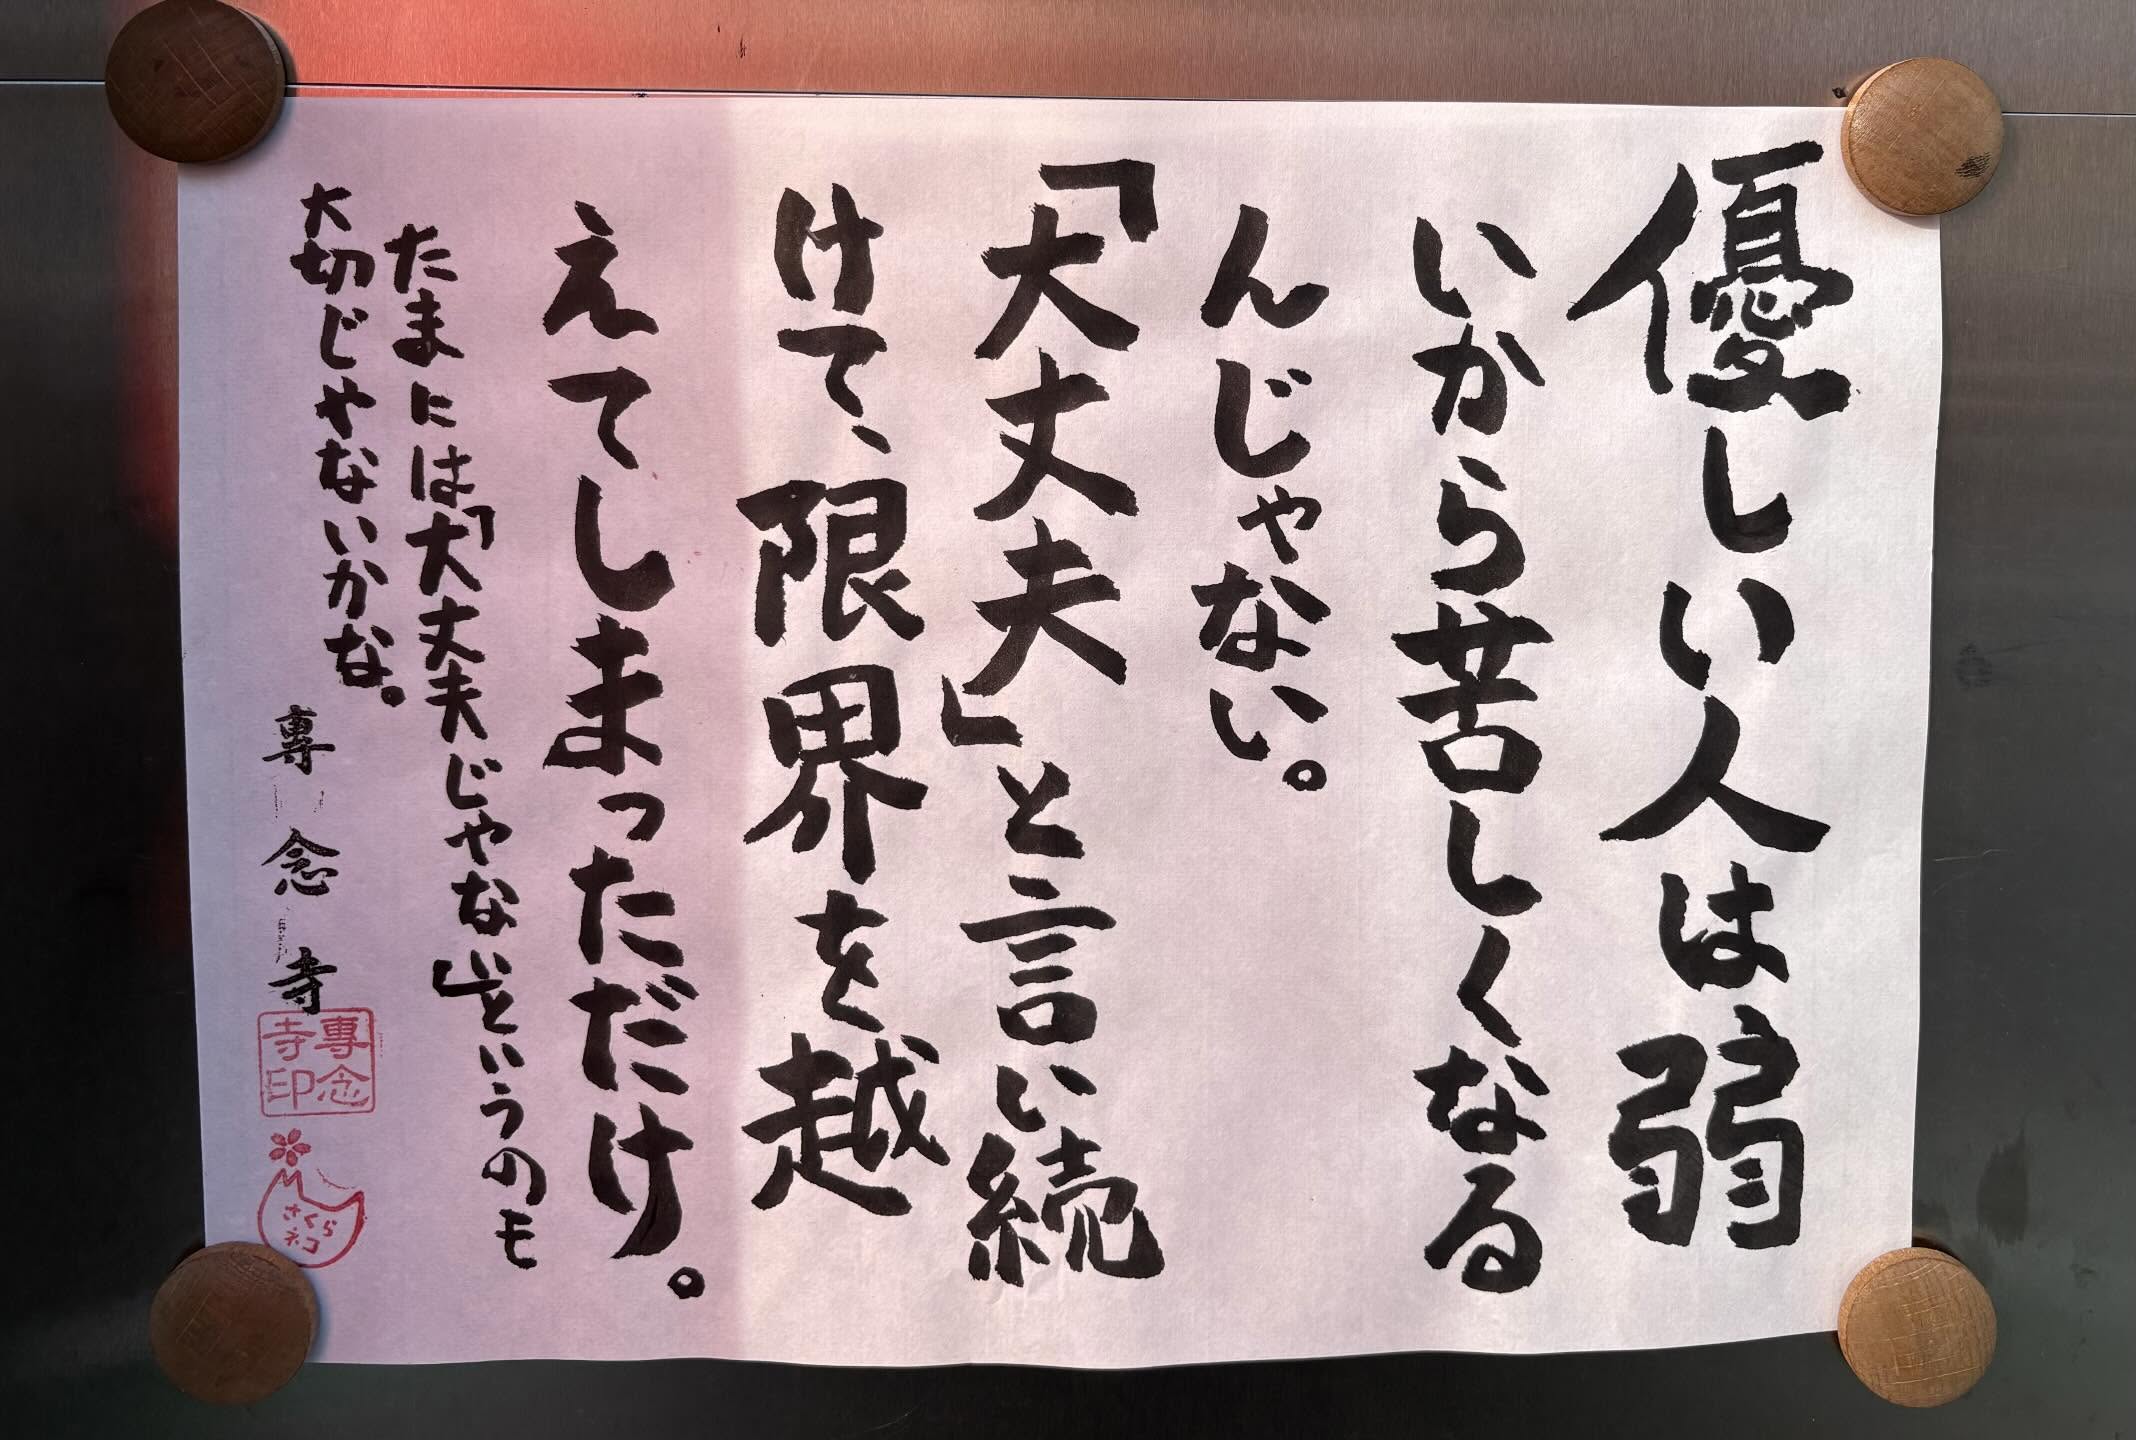 優しい人は弱
いから苦しくなる
んじゃない。
「大丈夫」と言い続
けて、限界を越
えてしまっただけ。
たまには「大丈夫じゃない」というのも
大切じゃないかな。
專念寺
專念
寺印
さくら
ネコ